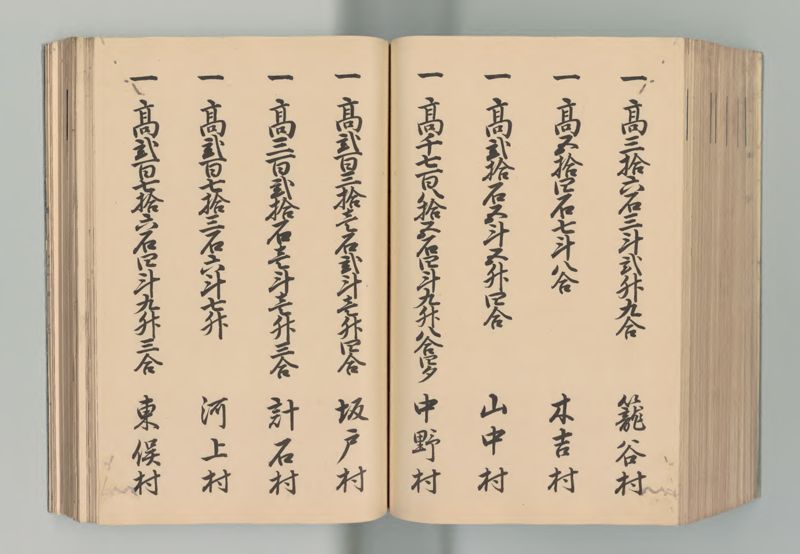 一高三拾六石三斗弐升九合 籠谷村
一高五拾四石七斗八合 木吉村
一高弐拾石五斗五升四合 山中村
一高千七百八拾五石四斗九升八合四夕 中野村
一高弐百三拾壱石弐斗壱升四合 坂戸村
一高三百弐拾石壱斗壱升三合 計石村
一高弐百七拾三石六斗七升 河上村
一高弐百七拾六石四斗九升三合 東俣村